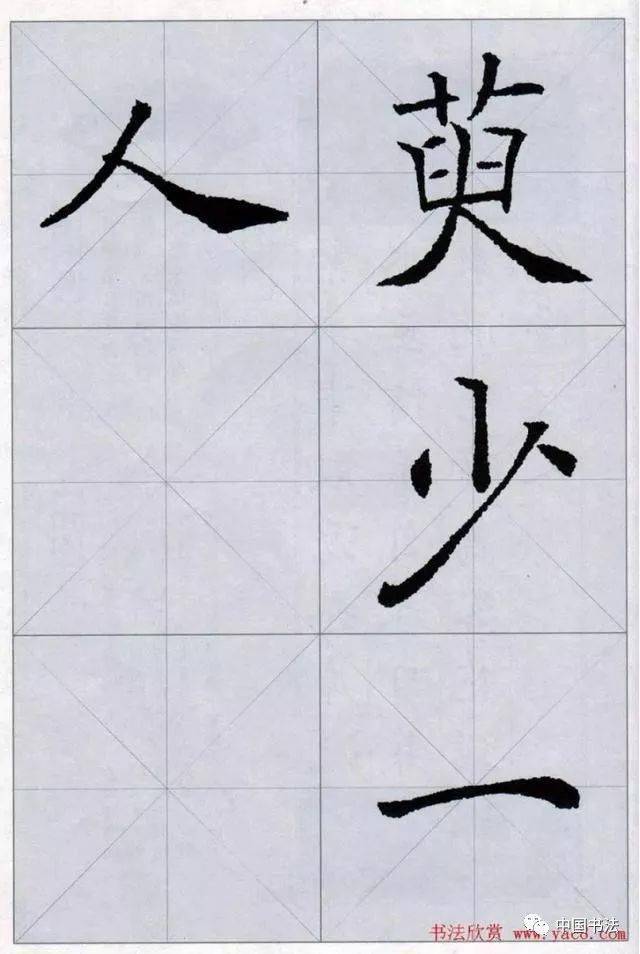 萸少一
人
书法欣赏 www.yac8.com
中国书法